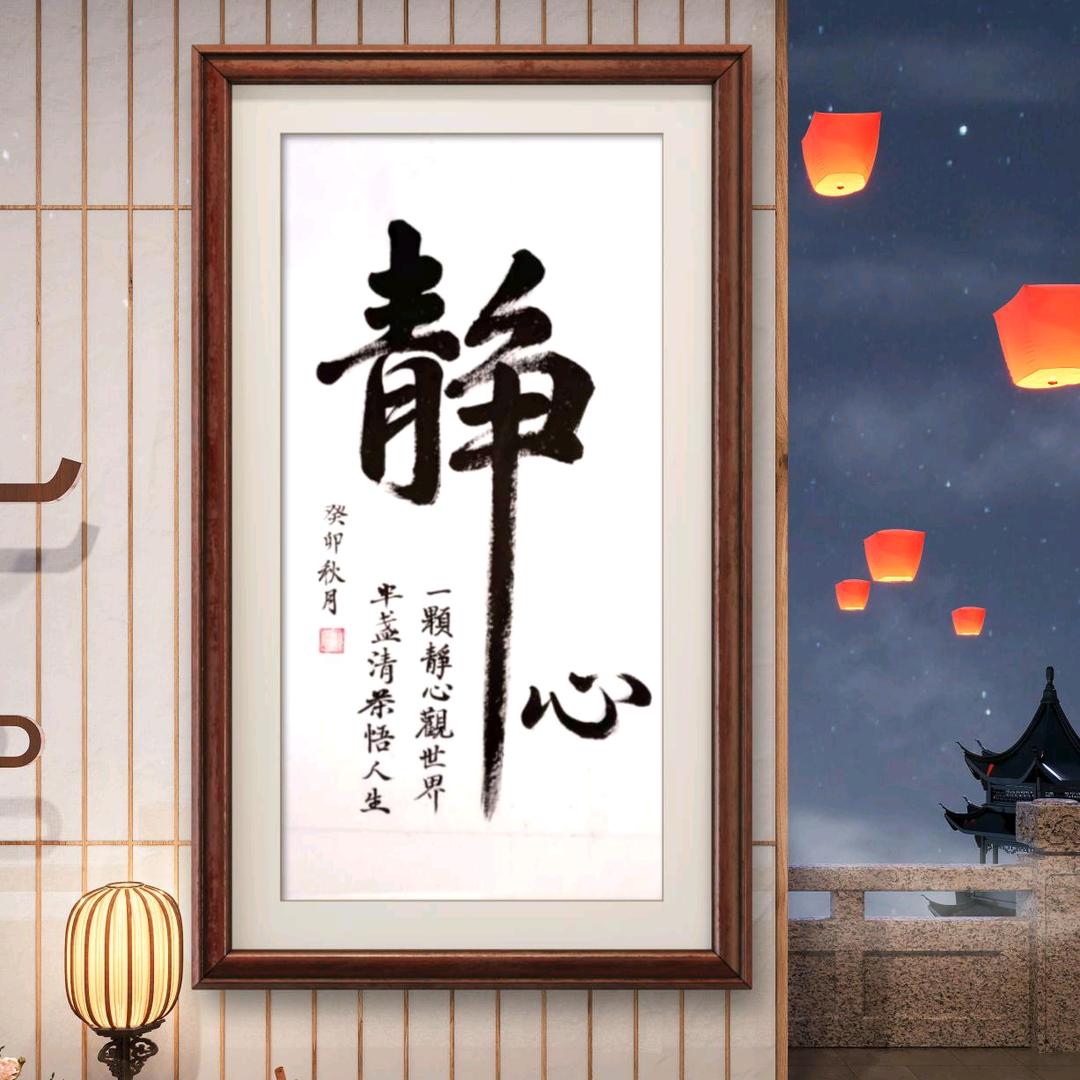 靜心
一顆靜心觀世界
半盞清茶悟人生
癸卯秋月